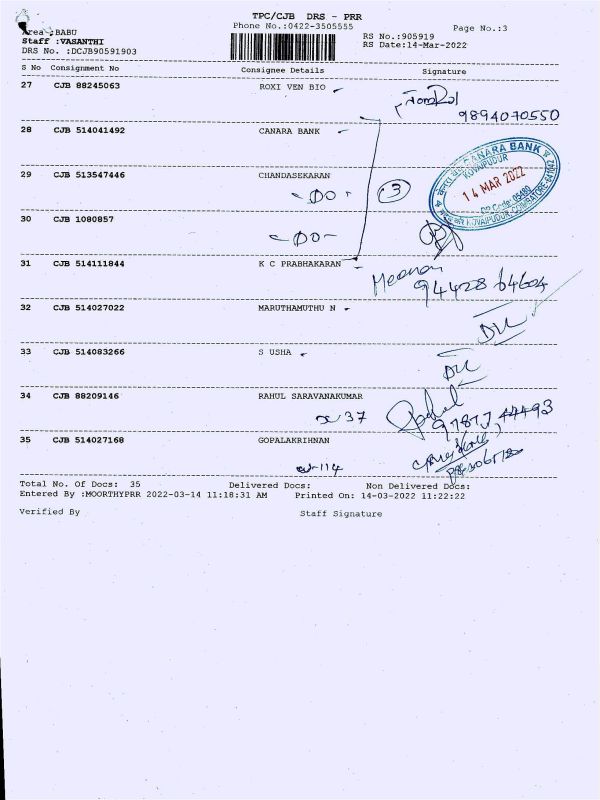 TPC/CJB DRS - PRR
Phone No.:0422-3505555
Page No.:3
Area :BABU
Staff :VASANTHI
DRS No. :DCJB90591903
RS No.:905919
RS Date:14-Mar-2022
S No Consignment No Consignee Details Signature
27 CJB 88245063 ROXI VEN BIO
9894070550
28 CJB 514041492 CANARA BANK
CANARA BANK
KOVAIPUDUR
14 MAR 2022
KOVAIPUDUR, COIMBATORE 641042
29 CJB 513547446 CHANDASEKARAN
- DO -
3
30 CJB 1080857
- DO -
31 CJB 514111844 K C PRABHAKARAN
94428 64604
32 CJB 514027022 MARUTHAMUTHU N
DU
33 CJB 514083266 S USHA
DU
34 CJB 88209146 RAHUL SARAVANAKUMAR
37
35 CJB 514027168 GOPALAKRIHNAN
114
Total No. Of Docs: 35 Delivered Docs: Non Delivered Docs:
Entered By :MOORTHYPRR 2022-03-14 11:18:31 AM Printed On: 14-03-2022 11:22:22
Verified By Staff Signature